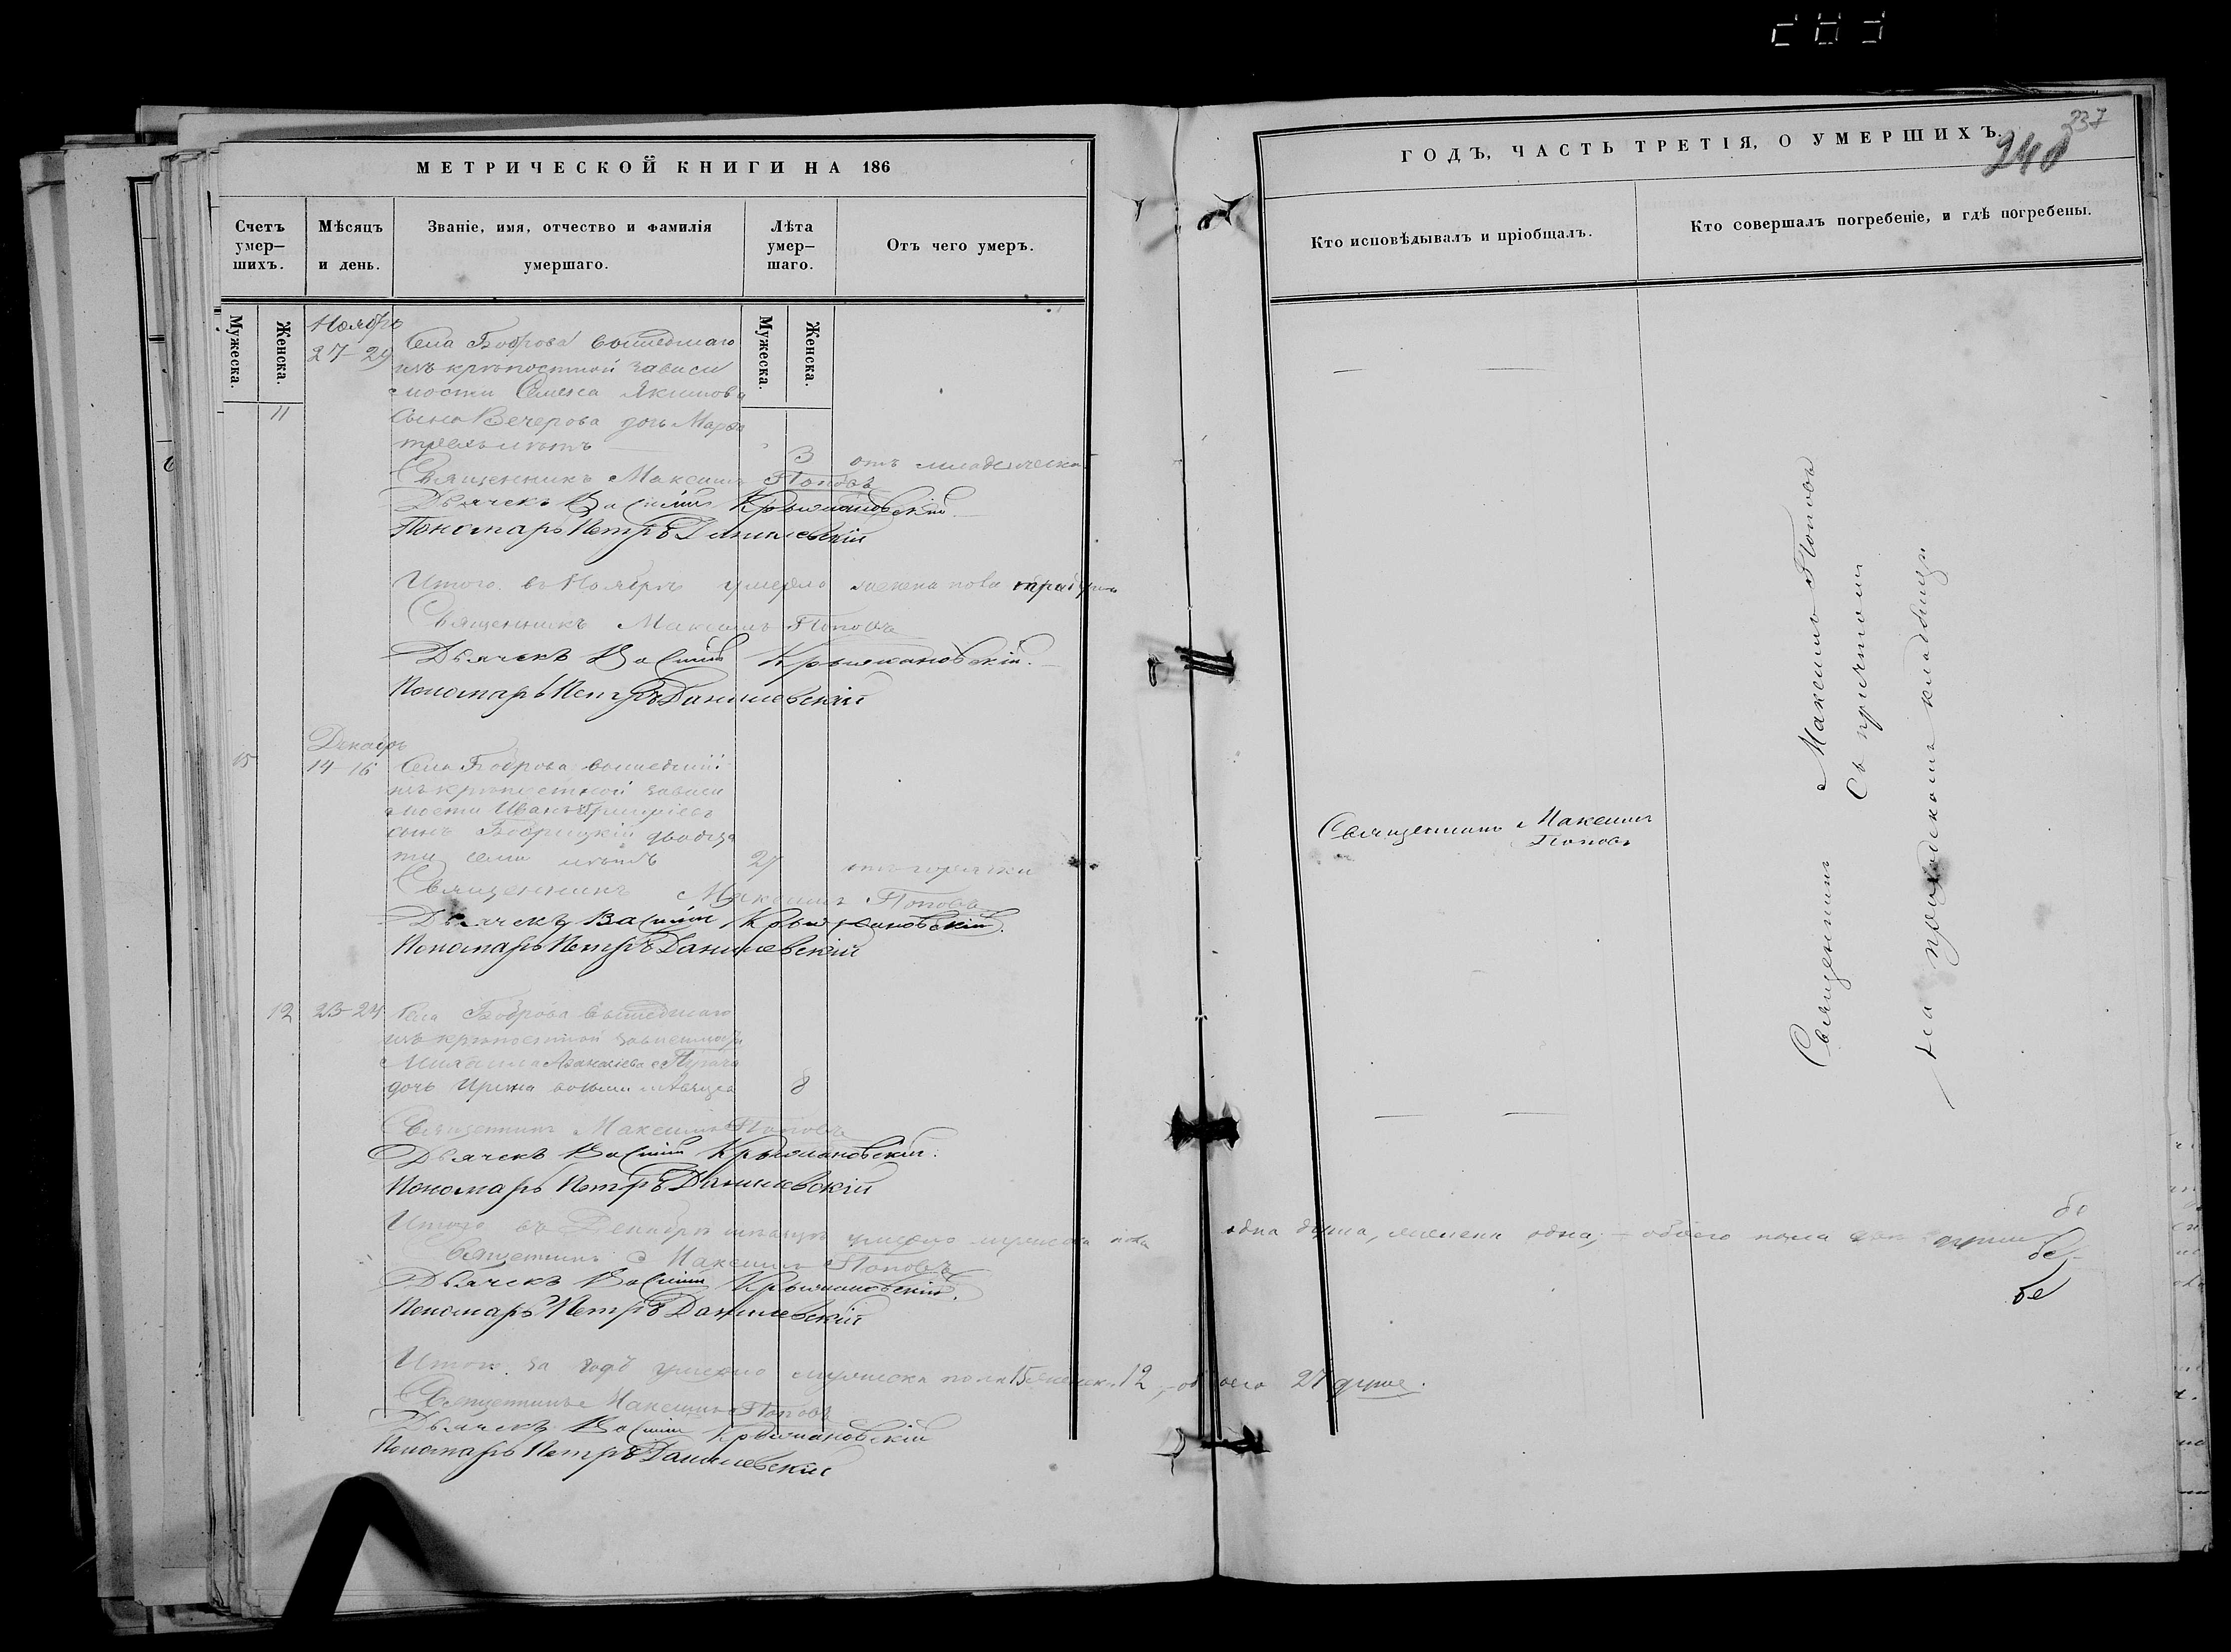 МЕТРИЧЕСКОЙ КНИГИ НА 186
Счетъ умер-шихъ.
Мѣсяцъ и день.
Званіе, имя, отчество и фамилія умершаго.
Лѣта умер-шаго.
Отъ чего умеръ.
Мужеска.
Женска.
Мужеска.
Женска.
Ноябрь
27-29
Села Боброва вышедшаго
изъ крѣпостной зависи
мости Семена Якимова
11
сына Вечерова дочь Марфа
трехъ лѣтъ
3
отъ младенческа
Священникъ Максимъ Поповъ
Дьячекъ Василій Крыжановскій
Пономарь Петръ Данилевскій
Итого въ Ноябрѣ умерло женска пола
Священникъ Максимъ Поповъ
Дьячекъ Василій Крыжановскій.
Пономарь Петръ Данилевскій
Декабрь
15
14-16
Села Боброва вышедшій
изъ крѣпостной зависи
мости Иванъ Григоріевъ
сынъ Бобрицкій двадца
ти семи лѣтъ
27
отъ горячки
Священникъ Максимъ Поповъ
Дьячекъ Василій Крыжановскій.
Пономарь Петръ Данилевскій
12
23-24
Села Боброва вышедшаго
изъ крѣпостной зависимости
Михаила Аѳанасіева
дочь Ирина восьми мѣсяцев
8
Священникъ Максимъ Поповъ
Дьячекъ Василій Крыжановскій.
Пономарь Петръ Данилевскій
Итого въ Декабрѣ мѣсяцѣ умерло мужеска пола одна душа, женска одна, - обоего пола души
Священникъ Максимъ Поповъ
Дьячекъ Василій Крыжановскій.
Пономарь Петръ Данилевскій
Итого за годъ умерло мужеска пола 15 женск. 12, - обоего 27 душъ.
Священникъ Максимъ Поповъ
Дьячекъ Василій Крыжановскій
Пономарь Петръ Данилевскій
237
240
ГОДЪ, ЧАСТЬ ТРЕТІЯ, О УМЕРШИХЪ.
Кто исповѣдывалъ и пріобщалъ.
Кто совершалъ погребеніе, и гдѣ погребены.
Священникъ Максимъ
Поповъ
Священникъ Максимъ Поповъ
Съ причтомъ
на приходскомъ кладбищѣ